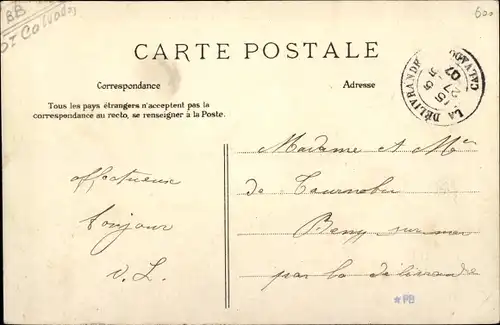 BB
St Calvados
600
CARTE POSTALE
Correspondance
Adresse
Tous les pays étrangers n'acceptent pas la
correspondance au recto, se renseigner à la Poste.
LA DÉLIVRANDE CALVADOS
27 5 07
Madame A Me
de Tournebu
Beny sur mer
par la délivrande
affectueux
bonjour
V. L.
*PB